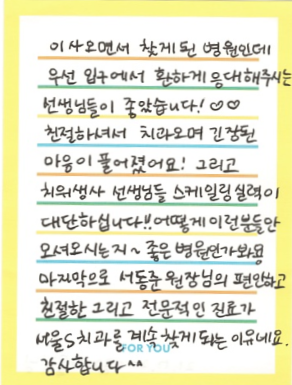 이사오면서 찾게된 병원인데
우선 입구에서 환하게 응대해주시는
선생님들이 좋았습니다! ♡♡
친절하셔서 치과오며 긴장된
마음이 풀어졌어요! 그리고
치위생사 선생님들 스케일링실력이
대단하십니다!! 어떻게 이런분들만
모셔오시는지~ 좋은 병원인가봐용
마지막으로 서동준 원장님의 편안하고
친절한 그리고 전문적인 진료가
서울S치과를 계속 찾게 되는 이유네요.
FOR YOU
감사합니다^^